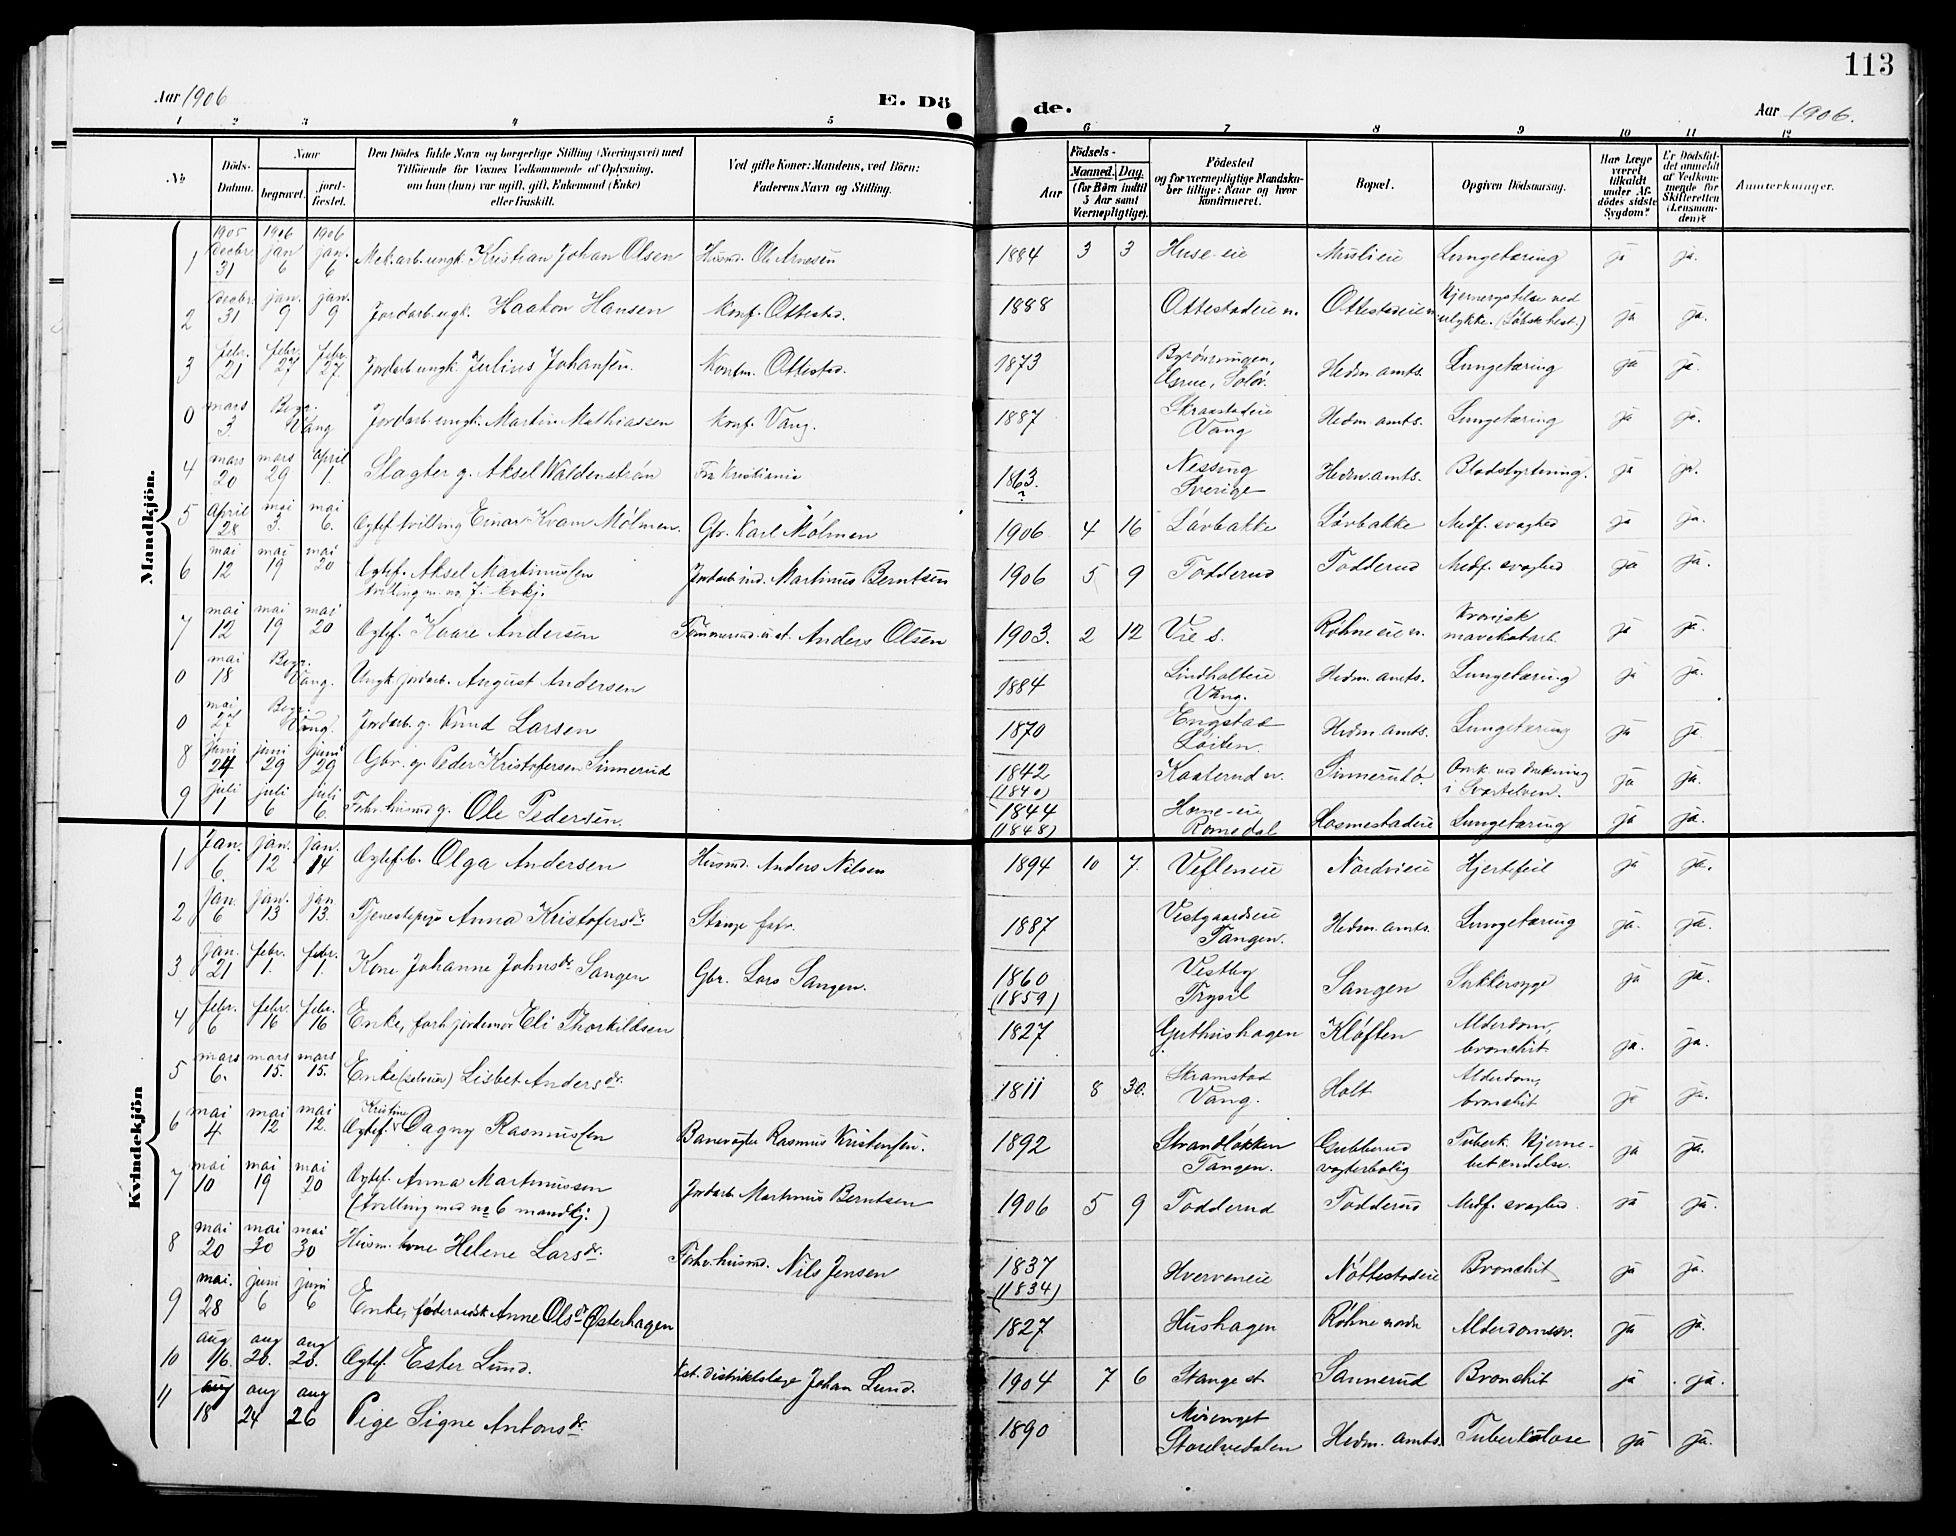 113
Aar 1906
E. Dö de.
Aar 1906.
1 2 3 4 5 6 7 8 9 10 11 12
No
Döds-Datum.
Naar
begravet.
jord-fæstet.
Den Dödes fulde Navn og borgerlige Stilling (Næringsvei) med
Tilföiende for Voxnes Vedkommende af Oplysning,
om han (hun) var ugift, gift, Enkemand (Enke)
eller fraskilt.
Ved gifte Koner: Mandens, ved Börn:
Faderens Navn og Stilling.
Födsels-
Aar
Maaned. Dag.
(for Börn indtil 5 Aar samt Værnepligtige).
Födested
og for værnepligtige Mandskaber tillige: Naar og hvor konfirmeret.
Bopæl.
Opgiven Dödsaarsag.
Har Læge været tilkaldt under Afdödes sidste Sygdom?
Er Dödsfaldet anmeldt af Vedkommende for Skifteretten (Lensmanden)?
Anmærkninger.
Mandkjön.
1 1905 decbr 31 1906 jan 6 1906 jan. 6 Mek.arb. ungk. Kristian Johan Olsen Husmd. Ole Arnesen 1884 3 3 Huse-eie Muslieie Lungetæring ja ja.
2 decbr. 31 jan. 9 jan. 9 Jordarb. ugk. Haakon Hansen Konf. Ottestad. 1888 Ottestadeie n. Ottestadeie n. Hjernerystelse ved ulykke. (Löbsk hest.) ja ja.
3 febr. 21 febr. 27 febr. 27. Jordarb ungk. Julius Johansen. Konfm. Ottestad. 1873 Solör. Hedm. amts. Lungetæring ja ja.
0 mars 3. Begr. Vang Jordarb. ungk. Martin Mathiassen Konf. Vang. 1887 Skraastadeie Vang Hedm. amts. Lungetæring ja ja.
4 mars 20 mars 29 april 1. Slagter g. Aksel Waldenström Fra Kristiania 1863. ? Nessing Sverige Hedm. amts. Blodstyrtning. ja ja.
5 April 28 mai 3. mai 6. Ogtef. tvilling Einar Kvam Mølmen. Gbr. Karl Mölmen 1906 4 16 Lövbakke Lövbakke Medf. svaghed ja ja.
6 mai 12 mai 19 mai 20 Ogtef. Aksel Martinussen tvilling m. no. 7. kvkj. Jordarb. ind. Martinus Berntsen 1906 5 9 Todderud Todderud Medf. svaghed ja ja.
7 mai 12 mai 19 mai 20 Ogtef. Kaare Andersen Tømmermd. u. st. Anders Olsen 1903. 2 12 Vie s. Röhneeie n. Kronisk mavekatarh. ja ja.
0 mai 18 Begr. Vang. Ungk. jordarb. August Andersen 1884 Lindholteie Vang. Hedm. amts. Lungetæring ja ja.
0 mai 27 Begr. Vang. Jordarb. g. Knud Larsen 1870 Engstad Löiten. Hedm. amts. Lungetæring ja ja
8 juni 24 juni 29 juni 29 Gbr. g. Peder Kristofersen Sinnerud 1842 (1840) Kaaterud n. Sinnerud ö. Omk. ved drukning i Svartelven. ja ja.
9 juli 1 juli 6 juli 6. Forhv. husmd g. Ole Pedersen. 1844 (1848) Horne-eie Romedal Hosmestadeie Lungetæring ja ja.
Kvindekjön
1 Jan. 6. jan. 12 jan. 14 Ogtef. b. Olga Andersen Husmd. Anders Nilsen 1894 10 7. Vefleneie Nordvieie Hjertefeil ja ja.
2 jan. 6 jan. 13 jan 13. Tjenestepige Anna Kristofersdr. Stange 1887 Vestgaardseie Tangen. Hedm. amts. Lungetæring ja. ja.
3 jan. 21 febr. 1. febr. 1. Kone Johanne Johnsdr. Sangen Gbr. Lars Sangen. 1860 (1859) Vestby Trysil Sangen Sukkersyge ja ja.
4 febr. 6 febr. 16 febr. 16 Enke, forh. jordemor Eli Thorkildsen 1827 Gjuthushagen Kløften Alderdom, bronchit. ja. ja.
5 mars 6. mars 15. mars 15. Enke (selveier) Lisbet Andersdr. 1811 8 30. Skramstad Vang. Holt Alderdom, bronchit ja ja.
6 mai 4. mai 12 mai 12. Ogtef. Kristine Dagny Rasmussen Banevogter Rasmus Kristensen. 1892 Strandløkken Tangen. Gubberud vogterbolig Tuberk. Hjerne-betændelse. ja ja.
7 mai 10 mai 19 mai 20 Ogtef. Anna Martinussen (tvilling med no 6 mandkj.) Jordarb. Martinus Berntsen 1906 5 9 Todderud Todderud Medf. svaghed. ja ja.
8 mai 20 mai 30 mai 30 Husm. kone Helene Larsdr. Forhv. husmd. Nils Jensen 1837 (1834) Hverveneie Nøttestadeie Bronchit ja ja.
9 mai. 28 juni 6 juni 6 Enke, føderaadsk Anne Olsdr. Østerhagen 1827 Hushagen Röhne nordre Alderdomssv. ja ja.
10 aug 16. aug 20. aug 20. Ogtef. Ester Lund. Kst. distriktslæge Johan Lund. 1904 7 6 Stange st. Sannerud Bronchit ja ja.
11 aug 18 aug 24 aug 26 Pige Signe Antonsdr. 1890 Storelvedalen Hedm. amts. Tuberkulose ja ja.